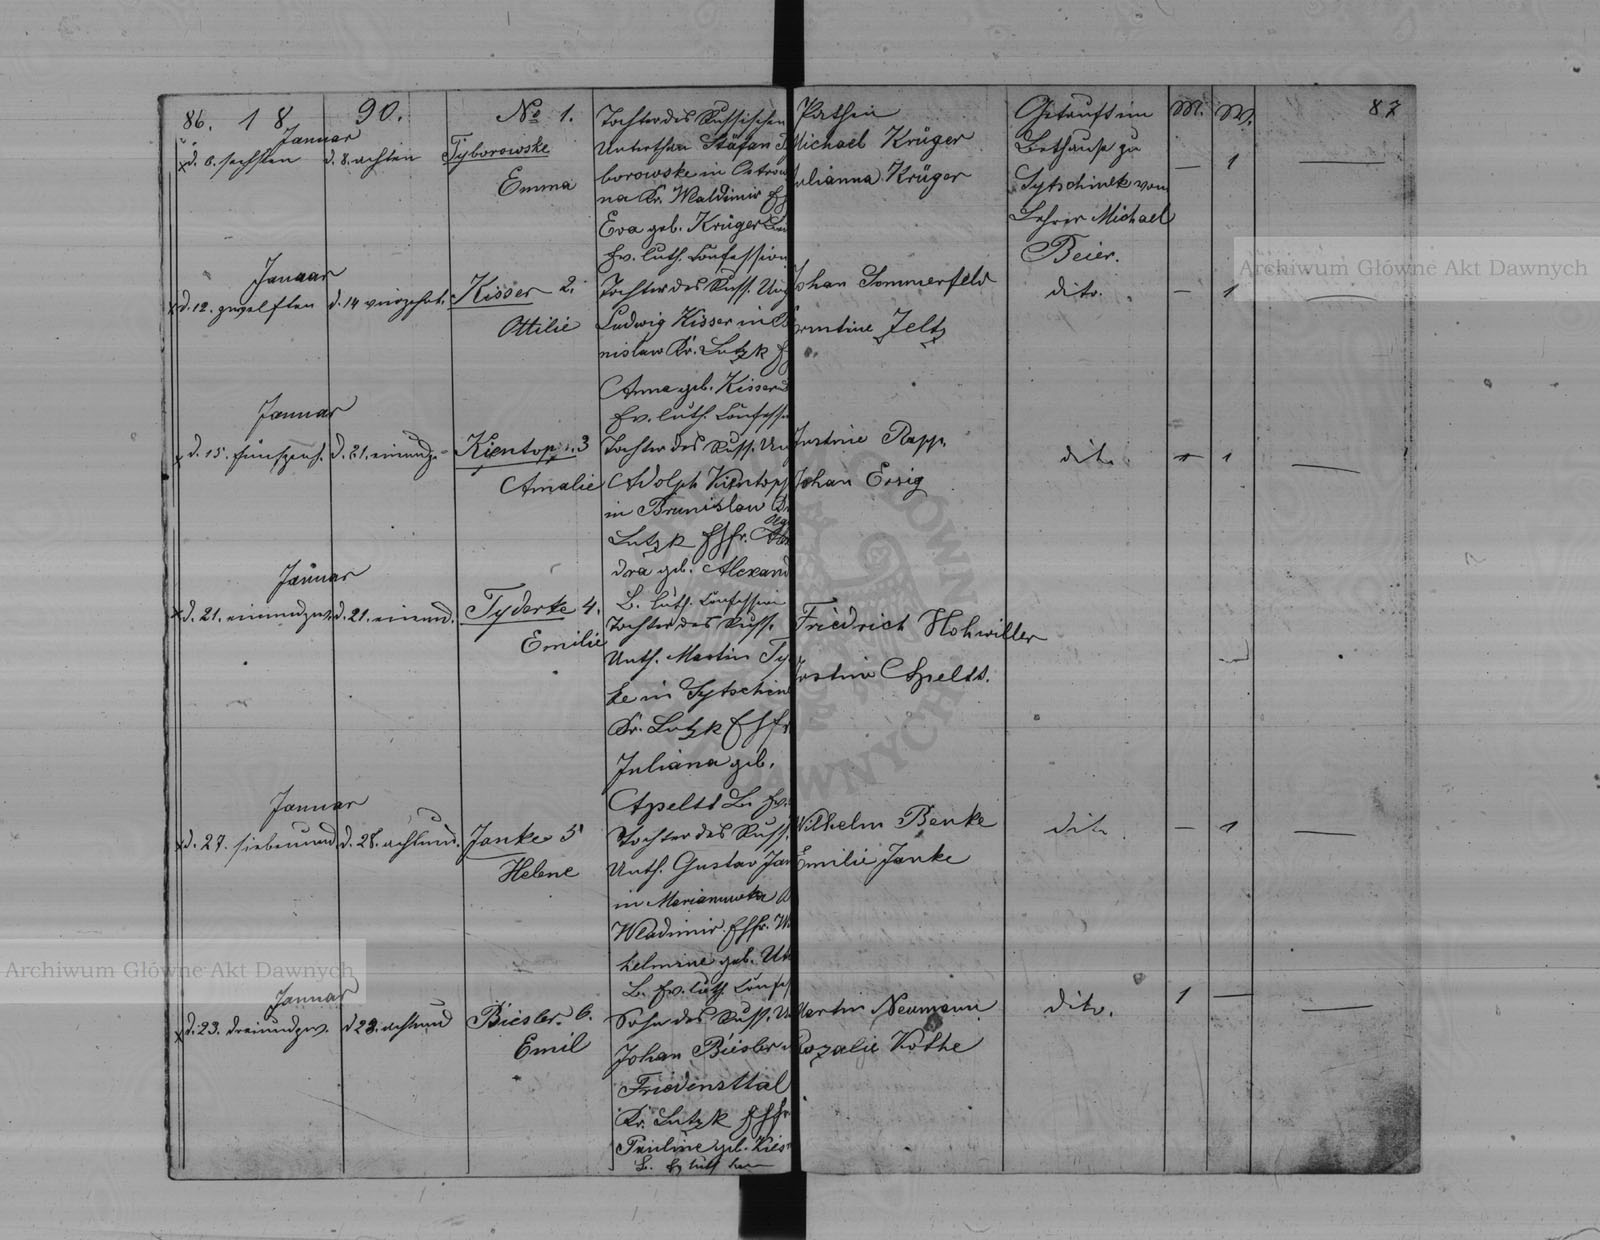 86. 1 8 90. № 1.
Januar
d. 6. sechsten d. 8. achten Tyborowske
Emma
Tochter des Russischen
Unterthan Stäfan Ty
borowske in Ostrow
na Kr. Wladimir
Eva geb. Krüger
Ev. luth. Confession
Pathen
Michael Krüger
Julianna Krüger
Getauft im
Bethause zu
Sytschinek vom
Lehrer Michael
Beier.
M. W. 87
— 1 —
Januar
d. 12. zwelften d. 14 vierzehnt. Kisser 2.
Ottilie
Tochter des Russ. Un
Ludwig Kisser in
nislaw Kr. Lutzk
Anna geb. Kisser
Ev. luth. Confess
Johan Sommerfeld
Ermtine Zeltz
dito. — 1 —
Januar
d. 15. fünfzenh. d. 21. einundz- Kientop. 3
Amalie
Tochter des Russ. Un
Adolph Kientop
in Brunislau
Lutzk Ehfr.
dra geb. Alexand
L. luth. Confession
Justine Rapp,
Johan Ersig
dito. 1 —
Januar
d. 21. einundzw. d. 21. einund. Tyderke 4.
Emilie
Tochter des Russ.
Unth. Martin Ty
ke in Sytschin
Kr. Lutzk Ehfr
Juliana geb.
Apeltt L. Ev.
Friedrich Hohwiller
Justine Apeltt.
Januar
d. 27. siebenund d. 28. achtund. Janke 5
Helene
Tochter des Russ.
Unth. Gustav Jan
in Marianuwka
Wladimir. Ehfr. Wi
helmine geb.
L. Ev. luth. Confess
Wilhelm Benke
Emilie Janke
dito. — 1 —
Januar
d. 23. dreiundzw. d 28. achtund Biesler. 6.
Emil
Sohn des Russ. U
Johan Biesler
Friedensttal
Kr. Lutzk Ehfr.
Pauline geb.
L. Ev luth
Martin Neumann
Rozalie Kothe
dito. 1 — —
Archiwum Główne Akt Dawnych
Archiwum Główne Akt Dawnych